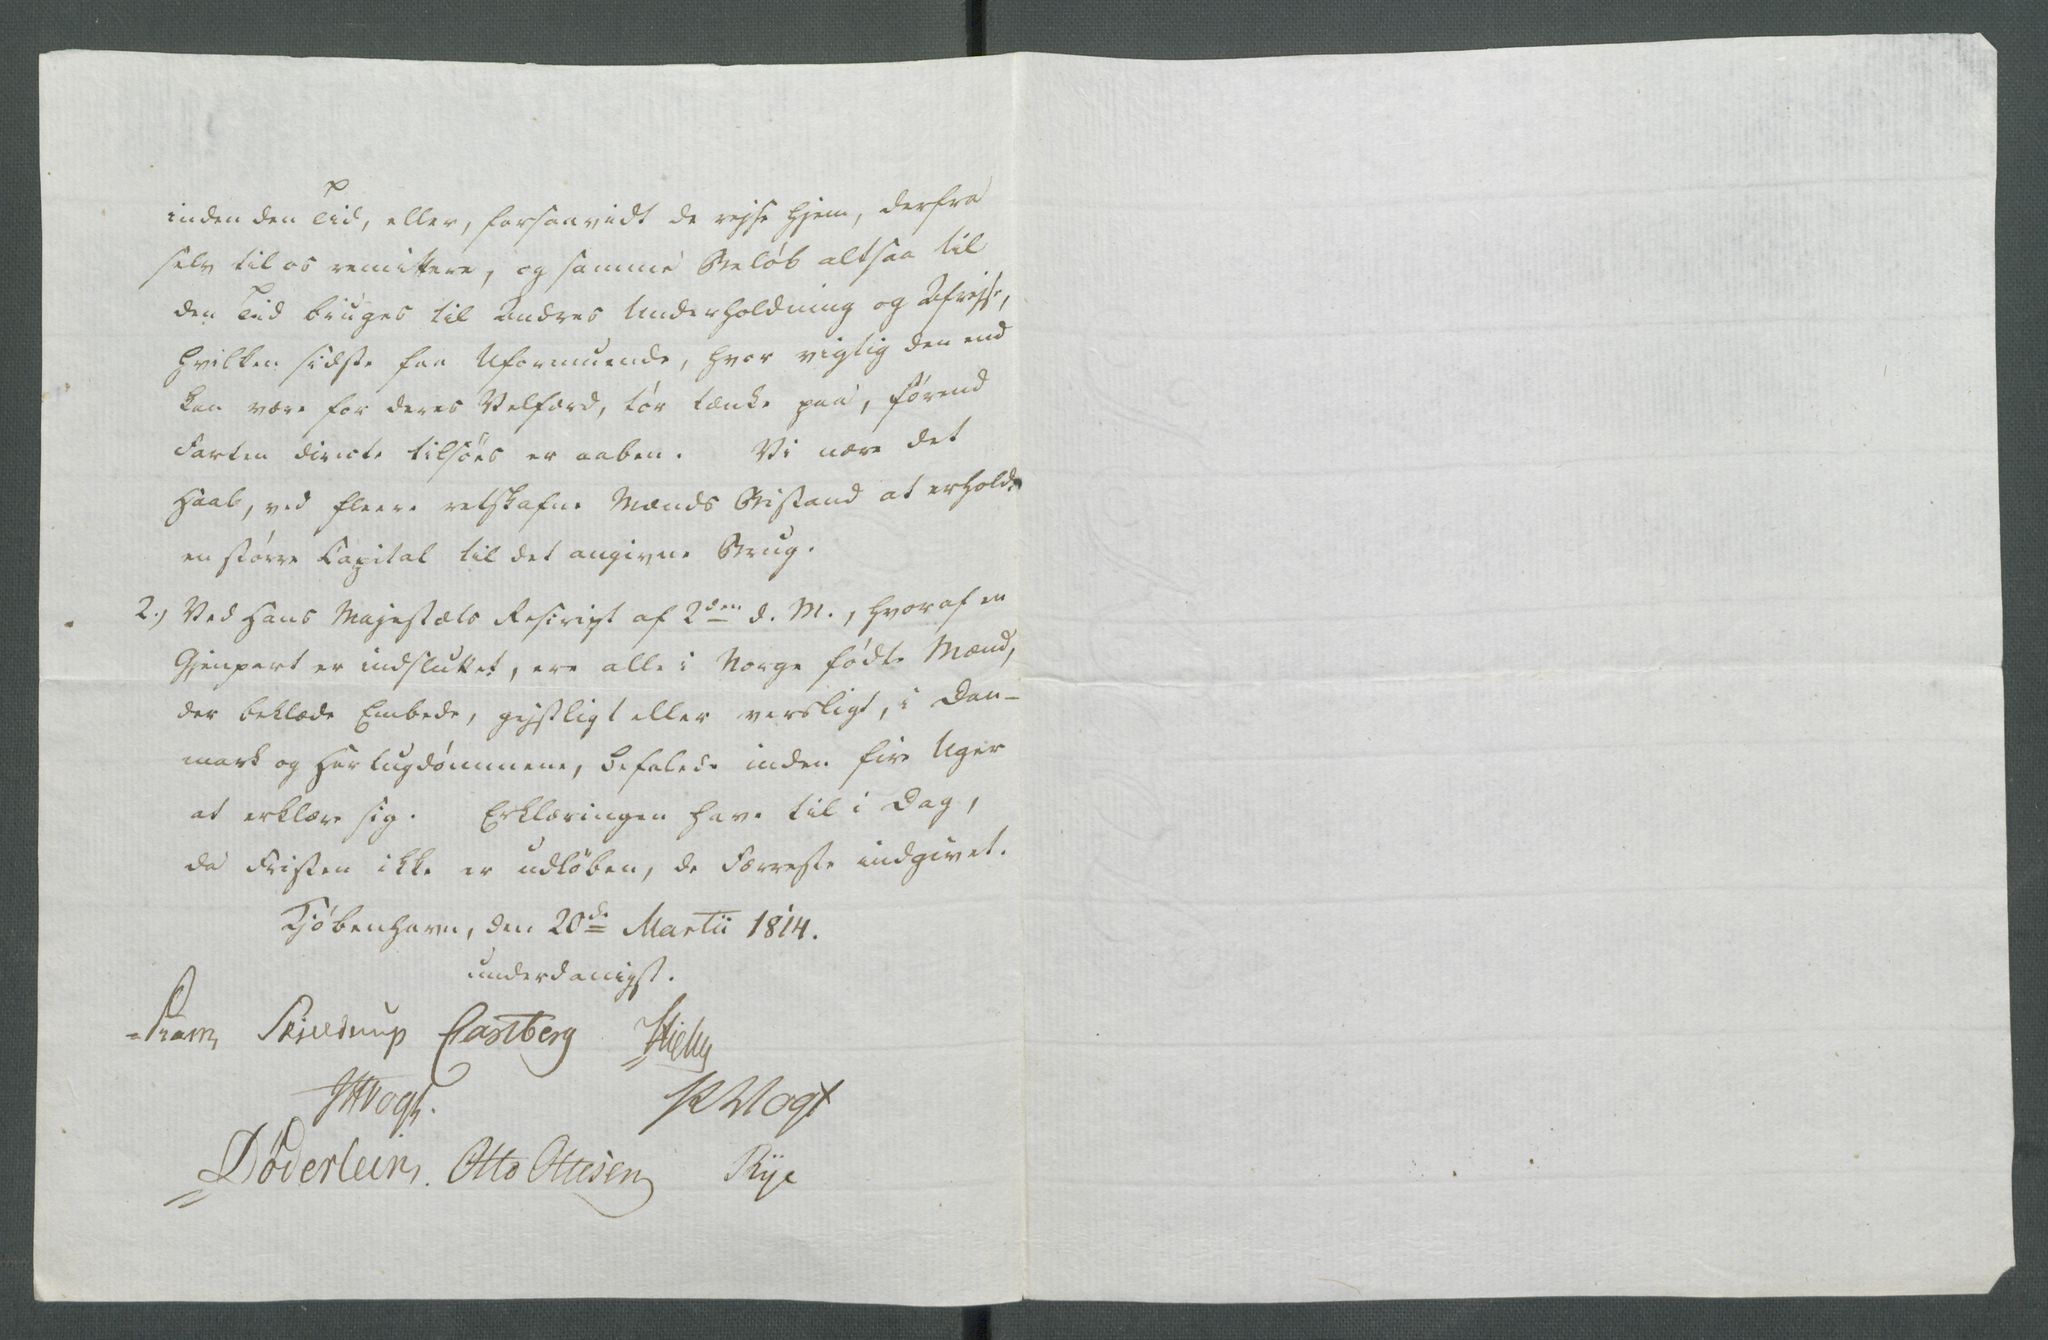 inden den Tid, eller, forsaavidt de rejse hjem, derfra
selv til os remittere, og samme Beløb altsaa til
den Tid bruges til Andres Underholdning og Afrejse,
hvilken sidste faa Uformuende, hvor vigtig den end
kan være for deres Velfærd, tør tænke paa, førend
Farten directe tilsöes er aaben. Vi nære det
Haab, ved fleere retskafne Mænds Bistand at erholde
en større Capital til det angivne Brug.
2.) Ved Hans Majestæts Rescript af 2den d. M., hvoraf en
Gjenpart er indsluttet, ere alle i Norge fødte Mænd,
der beklæde Embede, gejstligt eller verdsligt, i Dan-
mark og Hertugdømmene, befalede inden fire Uger
at erklære sig. Erklæringen have til i Dag,
da Fristen ikke er udløben, de Færreste indgivet.
Kjøbenhavn, den 20de Martii 1814.
underdanigst.
Pram Skjelderup Castberg
JHVogt. Vogt
Døderlein. Otto Ottesen Rye